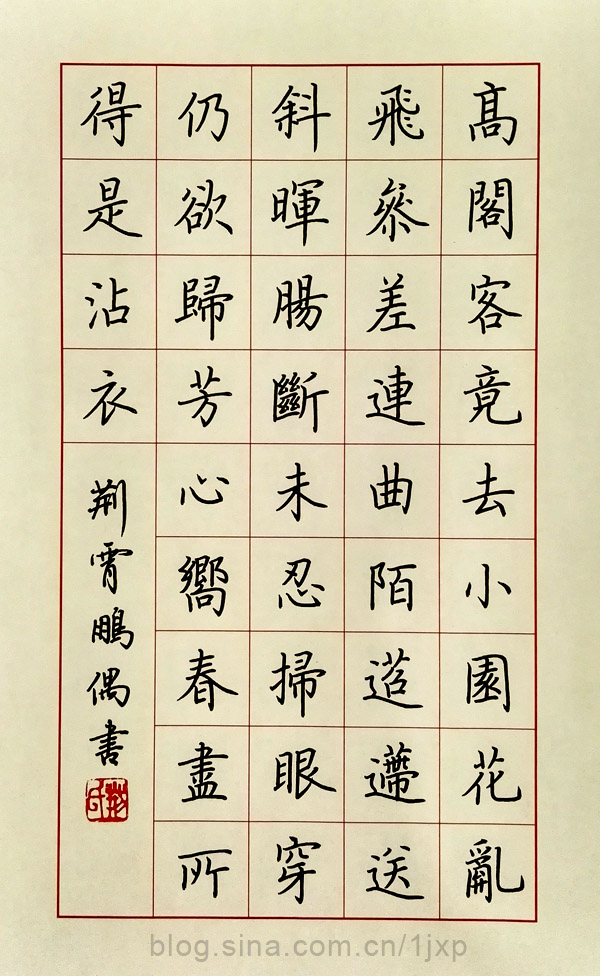 髙閣客竟去小園花亂
飛叅差連曲陌迢遰送
斜暉腸斷未忍掃眼穿
仍欲歸芳心嚮春盡所
得是沾衣
荊霄鵬偶書
荊氏
blog.sina.com.cn/1jxp